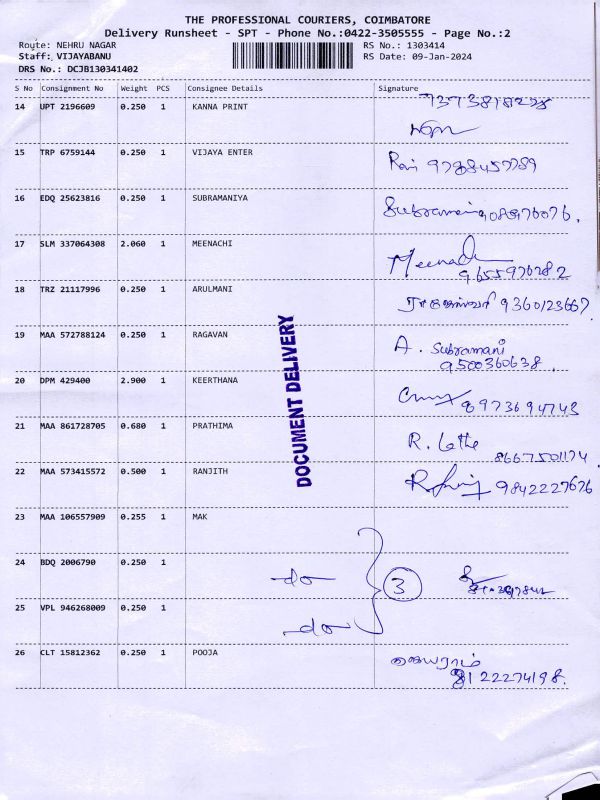 THE PROFESSIONAL COURIERS, COIMBATORE
Delivery Runsheet - SPT - Phone No.:0422-3505555 - Page No.:2
Route: NEHRU NAGAR RS No.: 1303414
Staff: VIJAYABANU RS Date: 09-Jan-2024
DRS No.: DCJB130341402
S No Consignment No Weight PCS Consignee Details Signature
14 UPT 2196609 0.250 1 KANNA PRINT
15 TRP 6759144 0.250 1 VIJAYA ENTER
16 EDQ 25623816 0.250 1 SUBRAMANIYA
17 SLM 337064308 2.060 1 MEENACHI Meenachi
9655970282
18 TRZ 21117996 0.250 1 ARULMANI 9360123667
19 MAA 572788124 0.250 1 RAGAVAN A. Subramani
9500360638
20 DPM 429400 2.900 1 KEERTHANA 8973694743
21 MAA 861728705 0.680 1 PRATHIMA R. Latha
8667501174
22 MAA 573415572 0.500 1 RANJITH 9842227676
23 MAA 106557909 0.255 1 MAK
24 BDQ 2006790 0.250 1 -do- 3
25 VPL 946268009 0.250 1 -do-
26 CLT 15812362 0.250 1 POOJA ஜெயராம்
8122274198.
DOCUMENT DELIVERY